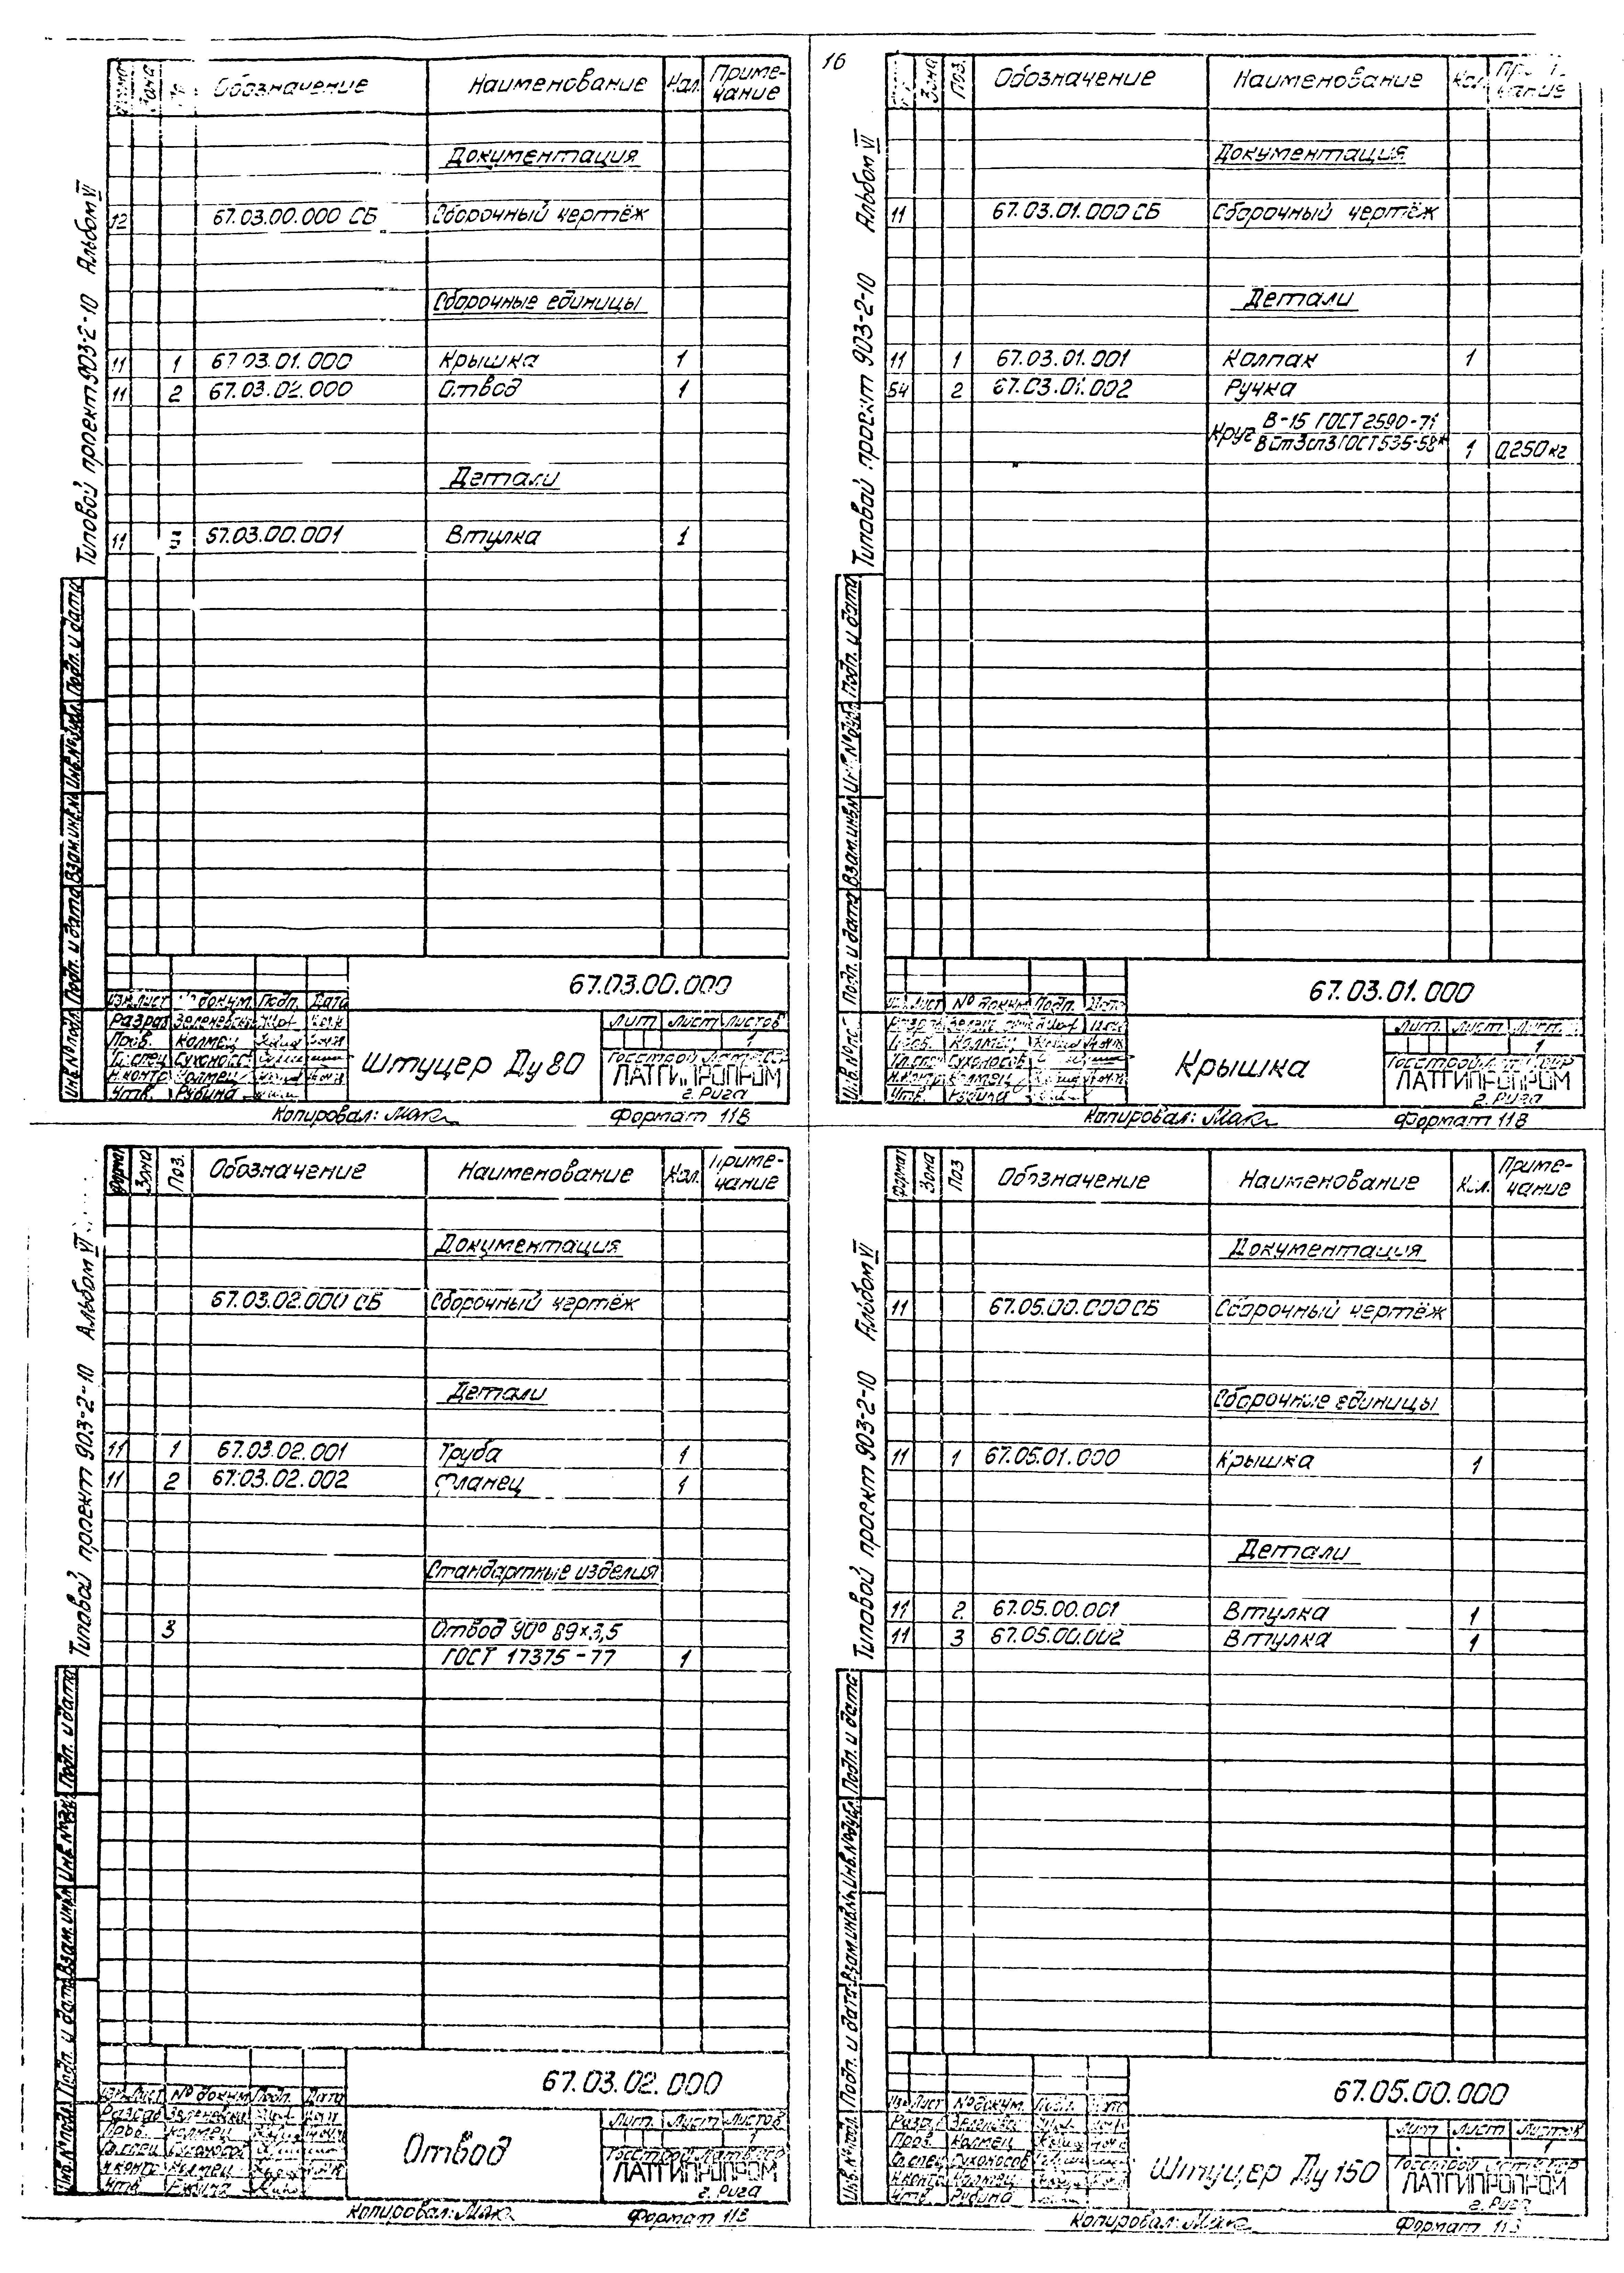 16
Зона Обозначение Наименование Кол. Приме-
чание
Документация
12 67.03.00.000 СБ Сборочный чертёж
Сборочные единицы
11 1 67.03.01.000 Крышка 1
11 2 67.03.02.000 Отвод 1
Детали
11 3 67.03.00.001 Втулка 1
Типовой проект 903-2-10 Альбом VI
Инв.№ подл. Подп. и дата Взам.инв.№ Инв.№ дубл. Подп. и дата
67.03.00.000
Изм. Лист № докум. Подп. Дата
Разраб
Пров. Калмец
Гл.спец Сухоносов
Н.контр Калмец
Утв. Рубина
Штуцер Ду 80
Лит Лист Листов
1
Госстрой
ЛАТГИПРОПРОМ
г. Рига
Копировал: Мак
Формат 11В
Зона Поз. Обозначение Наименование Кол.
Документация
11 67.03.01.000 СБ Сборочный чертёж
Детали
11 1 67.03.01.001 Колпак 1
Б4 2 67.03.01.002 Ручка
Круг В-15 ГОСТ 2590-71
ВСт3сп3 ГОСТ 535-58* 1 0,250 кг
Типовой проект 903-2-10 Альбом VI
Подп. и дата Взам.инв.№ Подп. и дата
67.03.01.000
Лист № докум. Подп. Дата
Пров. Калмец
Гл.спец Сухоносов
Н.контр Калмец
Утв. Рубина
Крышка
Лит. Лист
1
ЛАТГИПРОПРОМ
г. Рига
Копировал: Мак
Формат 11В
Формат Зона Поз. Обозначение Наименование Кол. Приме-
чание
Документация
67.03.02.000 СБ Сборочный чертёж
Детали
11 1 67.03.02.001 Труба 1
11 2 67.03.02.002 Фланец 1
Стандартные изделия
3 Отвод 90° 89×3,5
ГОСТ 17375-77 1
Типовой проект 903-2-10 Альбом VI
Инв.№ подл. Подп. и дата Взам.инв.№ Инв.№ дубл. Подп. и дата
67.03.02.000
Изм. Лист № докум. Подп. Дата
Пров. Калмец
Гл.спец Сухоносов
Н.контр Калмец
Утв.
Отвод
Лит. Лист Листов
1
ЛАТГИПРОПРОМ
г. Рига
Копировал: Мак
Формат 11В
Формат Зона Поз Обозначение Наименование Кол. Приме-
чание
Документация
11 67.05.00.000 СБ Сборочный чертёж
Сборочные единицы
11 1 67.05.01.000 Крышка 1
Детали
11 2 67.05.00.001 Втулка 1
11 3 67.05.00.002 Втулка 1
Типовой проект 903-2-10 Альбом VI
Инв.№ подл. Подп. и дата Взам.инв.№ Инв.№ дубл. Подп. и дата
67.05.00.000
Изм. Лист № докум. Подп.
Пров. Калмец
Гл.спец Сухоносов
Н.контр Калмец
Утв. Рубина
Штуцер Ду 150
Лит Лист Листов
1
ЛАТГИПРОПРОМ
г. Рига
Копировал: Мак
Формат 11В